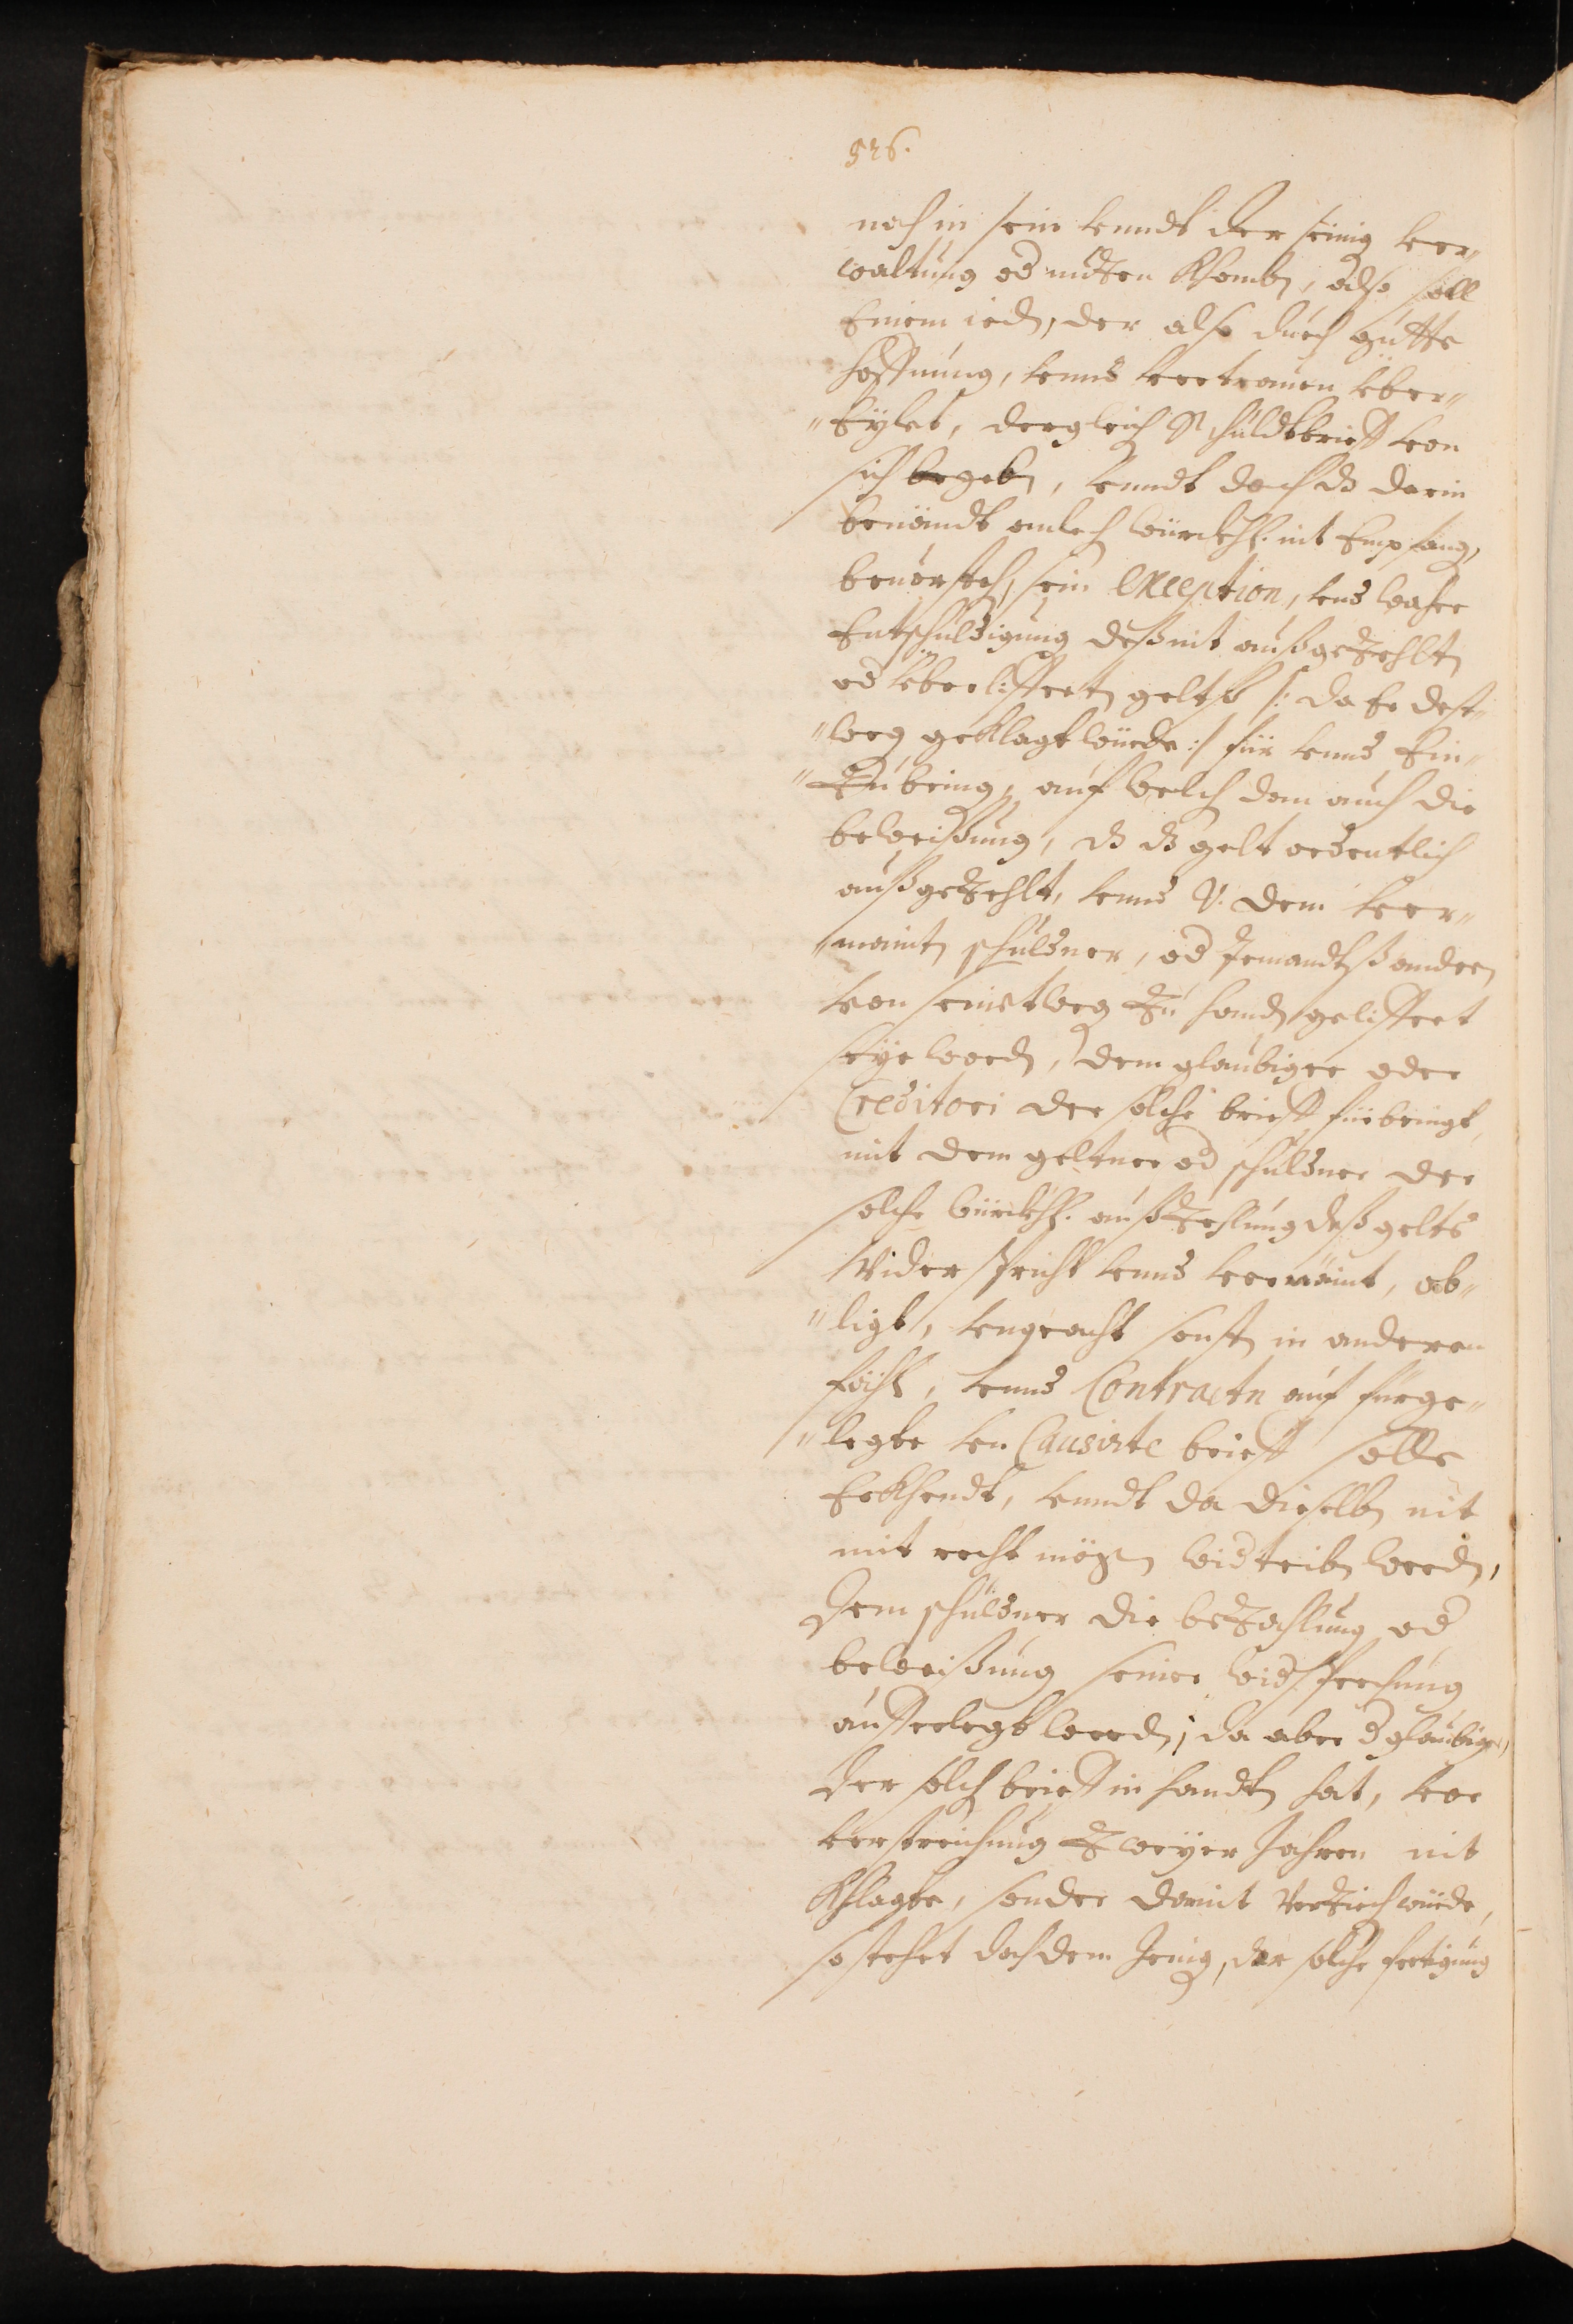 526.
noch in sein vnndt der seinig ver„
waltung od nutzen khomben, also soll
Einem ied, der also durch gutte
hoffnung, vnnd vertrauen über„
„Eylet, dergleich Schuldtbrieff von
sich begeben, vnndt doch dz darin
benändt anlech würckhl. nit Empfang,
beuorsteh, sein exception, vnd wahre
Entschuldigung deß nit außgezehlten
od überliffertn gelts /: da Er deß„
„weg geklagt würde :/ für vnnd Ein„
„Zubring, auf welch dem auch die
beweißung, dz dz gelt ordentlich
außgezehlt, vnnd v. dem ver„
„mainten schuldner, od Jemandtß andern
von seinetweg zu handen geliffert
seye worden, dem glaubiger oder
Creditori der solche brieff fürbringt,
mit dem geltner od schuldner der
solche würckhl. außzehlung deß gelts
widerspricht vnnd verneint, ob„
„ligt, vngeacht sonst in anderen
fähl, vnnd Contractn auf fürge„
„legte vn Causirte brieff solle
Erkhendt, vnndt da dieselben nit
mit recht mögen widtriben werden,
dem schuldner die bezahlung od
beweißung seiner widsprechung
aufferlegt werden, da aber d glaubiger,
der solch brieff in handten hat, vor
verstreichung zweyer Jahren nit
khlagte, sonder damit verziech würde,
so stehet doch dem Jenig, der solche fertigung